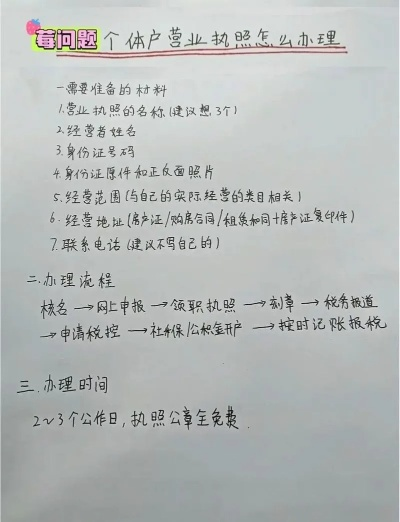 莓问题 个体户营业执照怎么办理
一需要准备的材料
1.营业执照的名称(建议想3个)
2.经营者姓名
3.身份证号码
4.身份证原件和正反面照片
5.经营范围(与自己的实际经营的类目相关)
6.经营地址(房产证/购房合同/租赁和同+房产证复印件)
7.联系电话(建议不写自己的)
二.办理流程
核名→网上申报→领职执照→刻章→税务报道
→申请税控→社保/公积金开户→按时记账报税
三.办理时间
2~3个公作日,执照公章全免费.